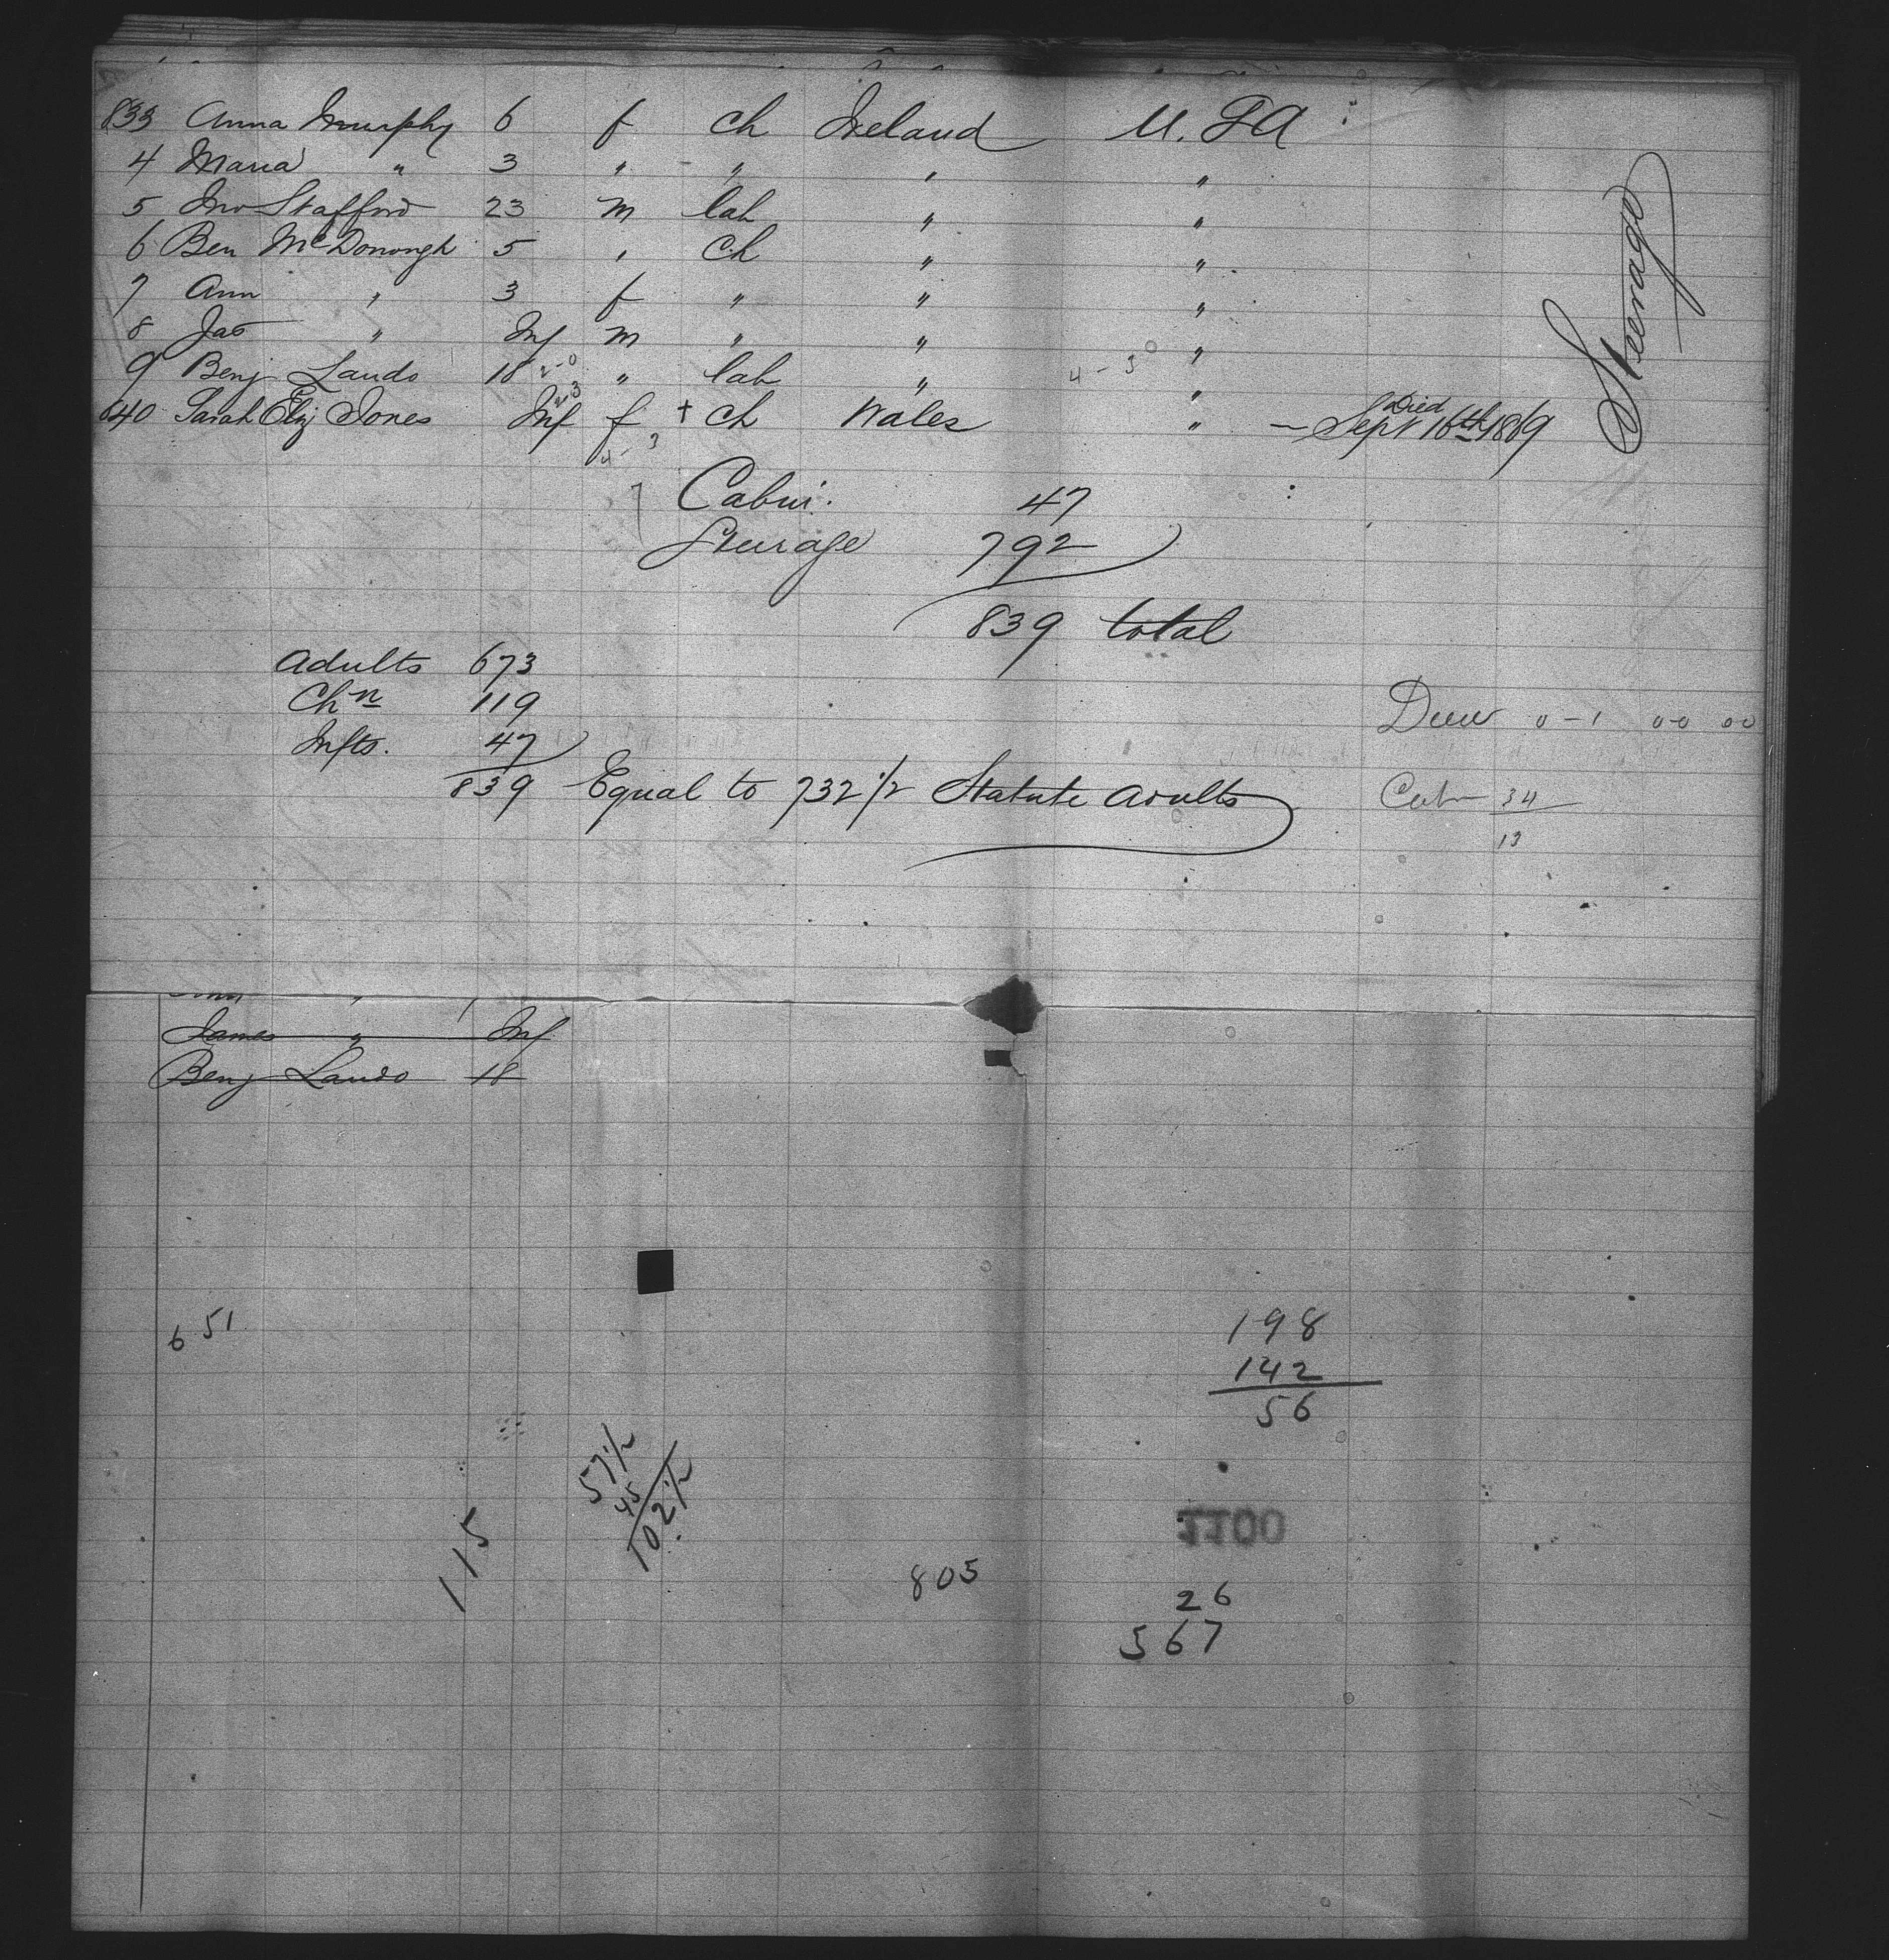 833 Anna Murphy 6 f Ch Ireland U.S.A
4 Maria " 3 " " " "
5 Jno Stafford 23 m lab " "
6 Ben McDonough 5 " Ch " "
7 Ann " 3 f " " "
8 Jas " Inf m " " "
9 Benj Lando 18 " lab " "
840 Sarah Eliz Jones Inf f + Ch Wales " — Died Sept 16th 1869
Steerage
4 - 3
Cabin. 47
Steerage 792
839 total
Adults 673
Chn 119
Infts. 47
839 Equal to 732 1/2 Statute Adults
0 - 1 00 00
Cab 34
13
Ann "
James " Inf
Benj Lando 18
651
198
142
56
57 1/2
45
102 1/2
115
1100
805
26
567